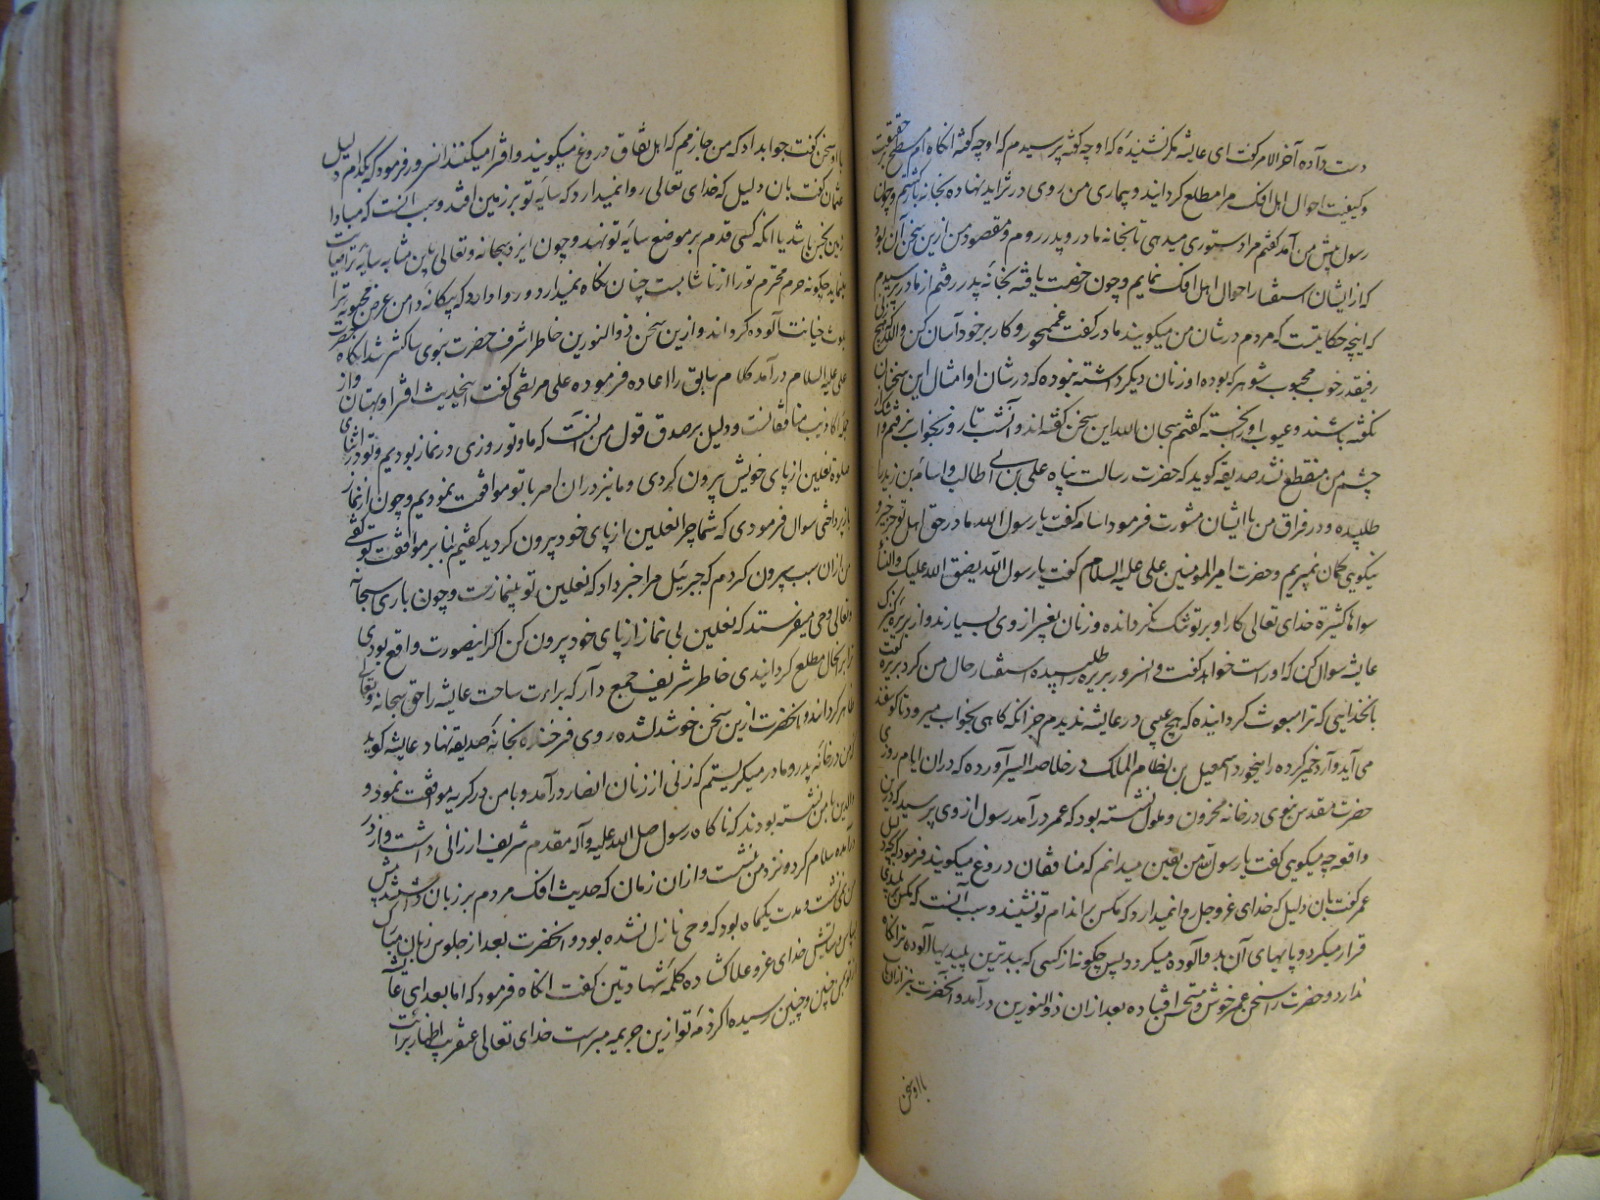 دست دآده آخر الامر گفت ای عایشه مگر نشنیدهٔ که او چه گفته پرسیدم که او چه گفته آنگاه ام مسطح بر حقیقت
و کیفیت احوال اهل افک مرا مطلع گردانید و بیماری من روی در تزاید نهاده بخانه بازگشتم و چون
رسول پیش من آمد گفتم مرا دستوری میدهی تا بخانه مادر و پدر روم و مقصود من ازین سخن آن بود
که از ایشان استفسار احوال اهل افک نمایم و چون رخصت یافته بخانهٔ پدر رفتم از مادر پرسیدم
که اینچه حکایتست که مردم در شان من میکویند مادر گفت غم مخور و کار بر خود آسان کن والله که هیچ زنی
رفیقدر خوب محبوب شوهر که بوده او زنان دیگر داشته نبوده که در شان او امثال این سخنان
نگفته باشند و عیوب او ریخته گفتم سبحان الله این سخن گفته اند و آنشب تا روز بخواب نرفتم و اشک
چشم من منقطع نشد صدیقه گوید که حضرت رسالت پناه علی بن ابی طالب و اسامه بن زید را
طلبیده و در فراق من با ایشان مشورت فرمود اسامه گفت یا رسول الله ما در حق اهل تو جز خیر و
نیکویی گمان نمیبریم و حضرت امیر المومنین علی علیه السلام گفت یا رسول الله لم یضق الله علیک والنساء
سواها کثیرة خدای تعالی کار او بر تو تنک نگردانده و زنان بغیر از وی بسیارند و از بریره کنیزک
عایشه سوال کن که او راست خواهد گفت و انسرور بریره طلبیده استفسار حال من کرد بریره گفت
بانخدایی که ترا مبعوث گردانیده که هیچ عیبی در عایشه ندیدم جز آنکه گاهی بخواب میرود تا گوسفند
می آید و آرد خمیر کرده را میخورد اسمعیل بن نظام الملک در خلاصه السیر آورده که در ان ایام روزی
حضرت مقدس نبوی در خانه محزون و ملول نشسته بود که عمر درآمد رسول از وی پرسید که درین
واقعه چه میکویی گفت یا رسول الله من یقین میدانم که منافقان دروغ میکویند فرمود که بچه دلیل
عمر گفت بان دلیل که خدای عز وجل روا نمیدارد که مکس بر اندام تو نشیند و سبب آنست که مکس بر پلیدی
قرار میگیرد و پایهای آن بدو آلوده میگردد پس چگونه از کسی که ببدترین پلیدیها آلوده ترا نگاه
ندارد و حضرت را سخن عمر خوش و مستحسن افتاده بعد از ان ذو النورین درآمد و آنحضرت نیز از ان باب
با او سخن
با او سخن گفت جواب داد که من جازمم که اهل نفاق دروغ میکویند و افترا میکنند انسرور فرمود که بکدام دلیل
عثمان گفت بان دلیل که خدای تعالی روا نمیدارد که سایهٔ تو بر زمین افتد و سبب آنست که مبادا
زمین نجس باشد یا آنکه کسی قدم بر موضع سایهٔ تو نهد و چون ایزد سبحانه و تعالی باین مثابه سایهٔ ترا صیانت
مینماید چگونه حرم محترم تو را از ناشایست چنان نگاه نمیدارد و روا دارد که بیگانهٔ دامن عرض محبوبه ترا
بلوث خیانت آلوده گرداند و ازین سخن ذو النورین خاطر اشرف حضرت نبوی ساکنتر شد آنگاه حضرت
علی علیه السلام درآمد کلام سابق را اعاده فرموده علی مرتضی گفت اینحدیث افترا و بهتان و از
جمله اکاذیب منافقانست و دلیل بر صدق قول من آنست که ما و تو روزی در نماز بودیم و تو در اثنای
صلوة نعلین از پای خویش بیرون کردی و ما نیز دران امر با تو موافقت نمودیم و چون از نماز
باز پرداختی سوال فرمودی که شما چرا نعلین از پای خود بیرون کردید گفتیم بنا بر موافقت تو گفتی
من ازان سبب بیرون کردم که جبرئیل مرا خبر داد که نعلین تو بنمازست و چون باری سبحانه
و تعالی وحی میفرستد که نعلین بی نماز از پای خود بیرون کن اگر اینصورت واقع بودی
ترا بر انحال مطلع گردانیدی خاطر شریف جمع دار که براءت ساحت عایشه را حق سبحانه و تعالی
ظاهر گرداند و آنحضرت ازین سخن خوشدل شده روی فرخنده بخانهٔ صدیقه نهاد عایشه گوید
که من در خانهٔ پدر و مادر میگریستم که زنی از زنان انصار درآمد و با من در گریه موافقت نمود و
والدین با من نشسته بودند که ناگاه رسول صلی الله علیه وآله مقدم شریف ارزانی داشت و از در
درآمده سلام کرد و نزد من نشست و ازان زمان که حدیث افک مردم بر زبان داشتند پیش
من ننشست و مدت یکماه بود که وحی نازل نشده بود و آنحضرت بعد از جلوس زبان مبارک
بسپاس و ستایش خدای عز و علا گشاده کلمهٔ شهادتین گفت آنگاه فرمود که اما بعد ای عایشه
از تو بمن چنین و چنین رسیده اگر ذمهٔ تو ازین جریمه مبراست خدای تعالی عنقریب اظهار برائت